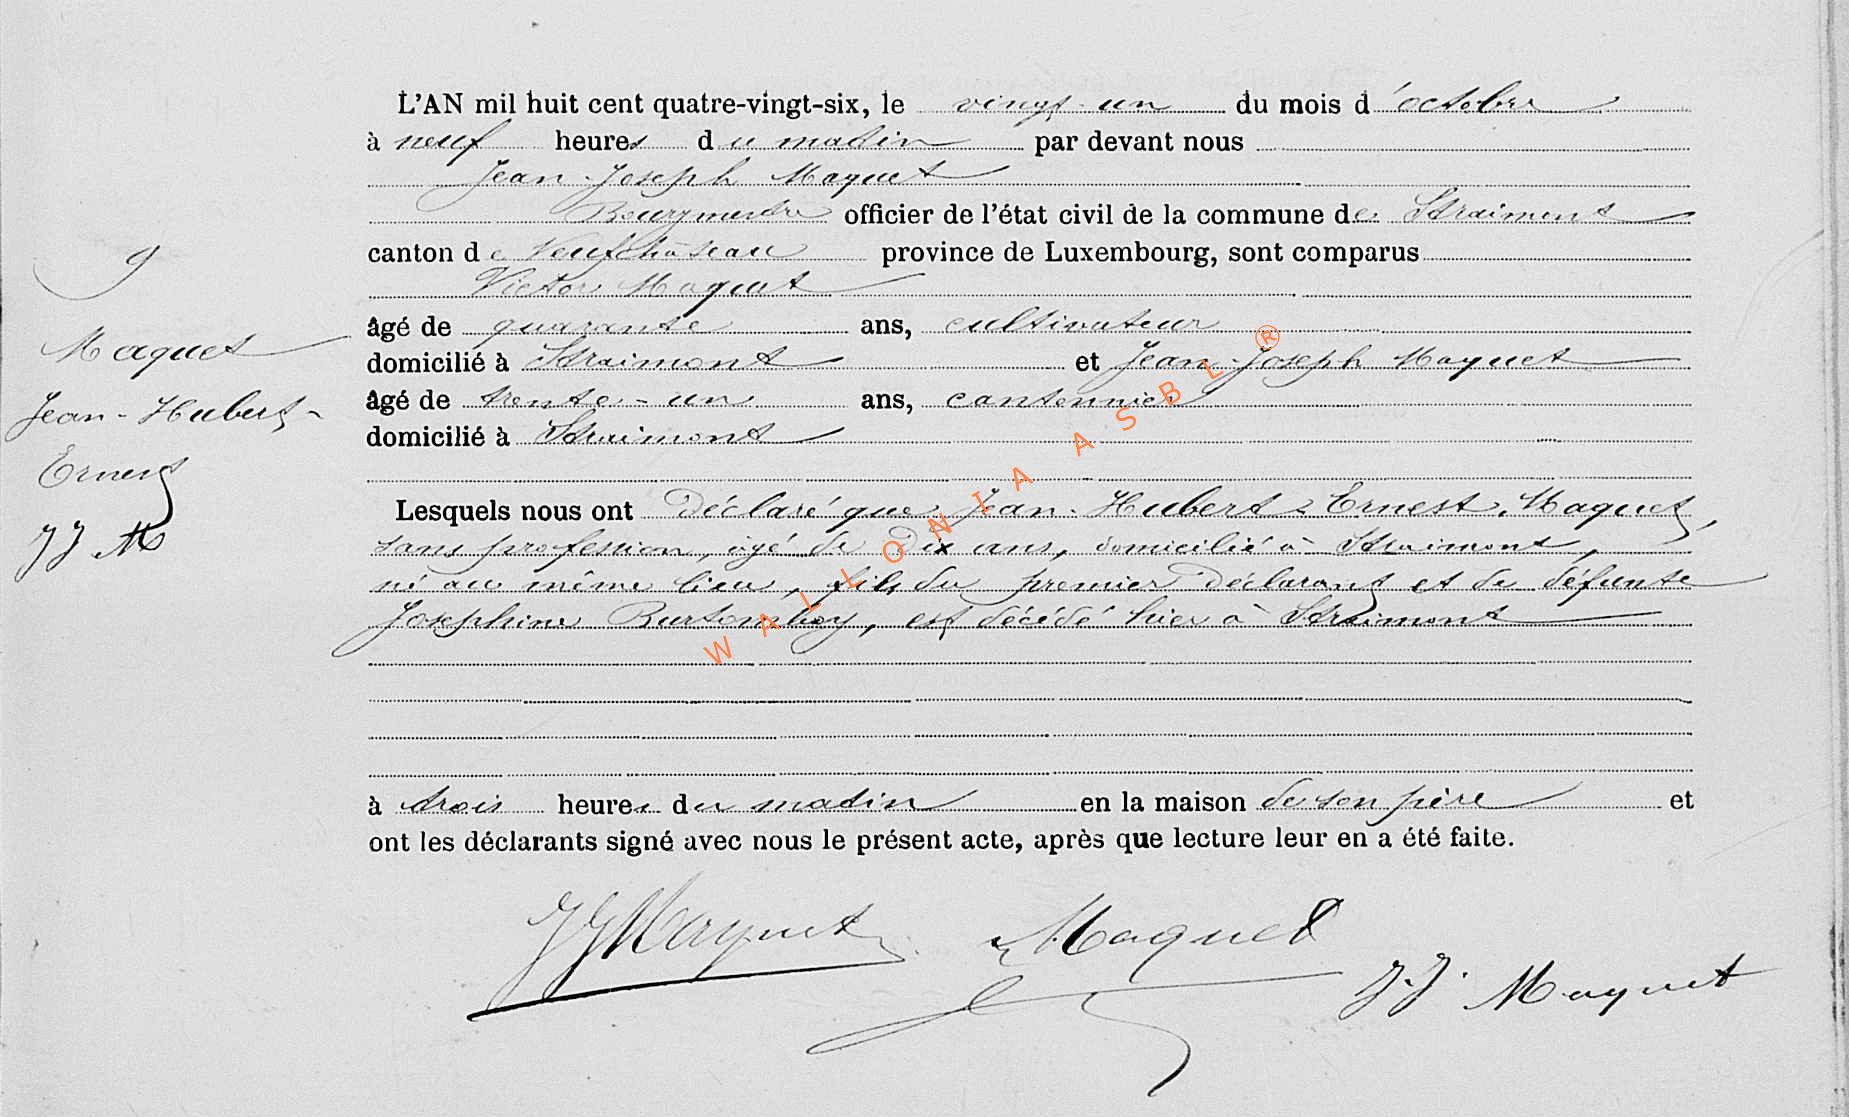 L'AN mil huit cent quatre-vingt-six, le vingt-un du mois d'octobre
à neuf heures du matin par devant nous
Jean-Joseph Maquet
Bourgmestre officier de l'état civil de la commune de Straimont
canton de Neufchâteau province de Luxembourg, sont comparus
Victor Maquet
âgé de quarante ans, cultivateur
domicilié à Straimont et Jean-Joseph Maquet
âgé de trente-un ans, cantonnier
domicilié à Straimont
9
Maquet
Jean-Hubert-
Ernest
JJ M
Lesquels nous ont déclaré que Jean-Hubert-Ernest Maquet,
sans profession, âgé de dix ans, domicilié à Straimont,
né au même lieu, fils du premier déclarant et de défunte
Josephine Burtomboy, est décédé hier à Straimont
à trois heures du matin en la maison de son père et
ont les déclarants signé avec nous le présent acte, après que lecture leur en a été faite.
JJ Maquet Maquet
J.J. Maquet
WALLONIA ASBL ®